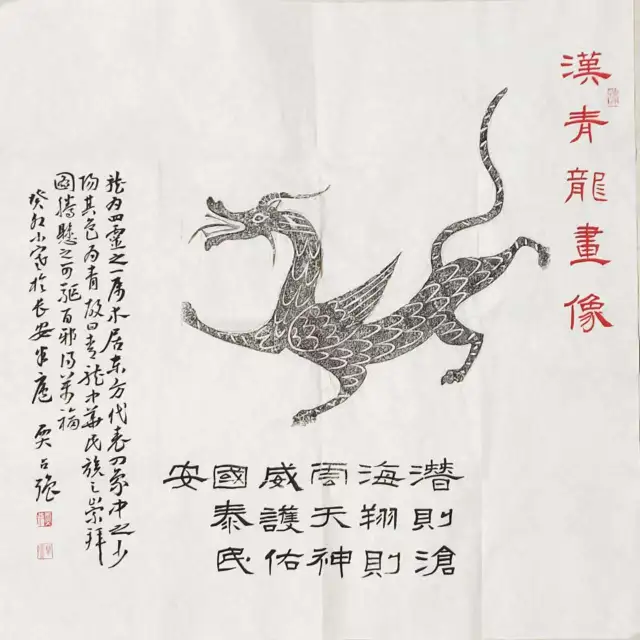 漢青龍畫像
潛則滄
海翔則
雲天神
威護佑
國泰民
安
龙为四靈之一属木居东方代表四象中之少
陽其色为青故曰青龙中華民族之崇拜
圖腾懸之可驅百邪得萬福
癸卯小寒於长安半庭